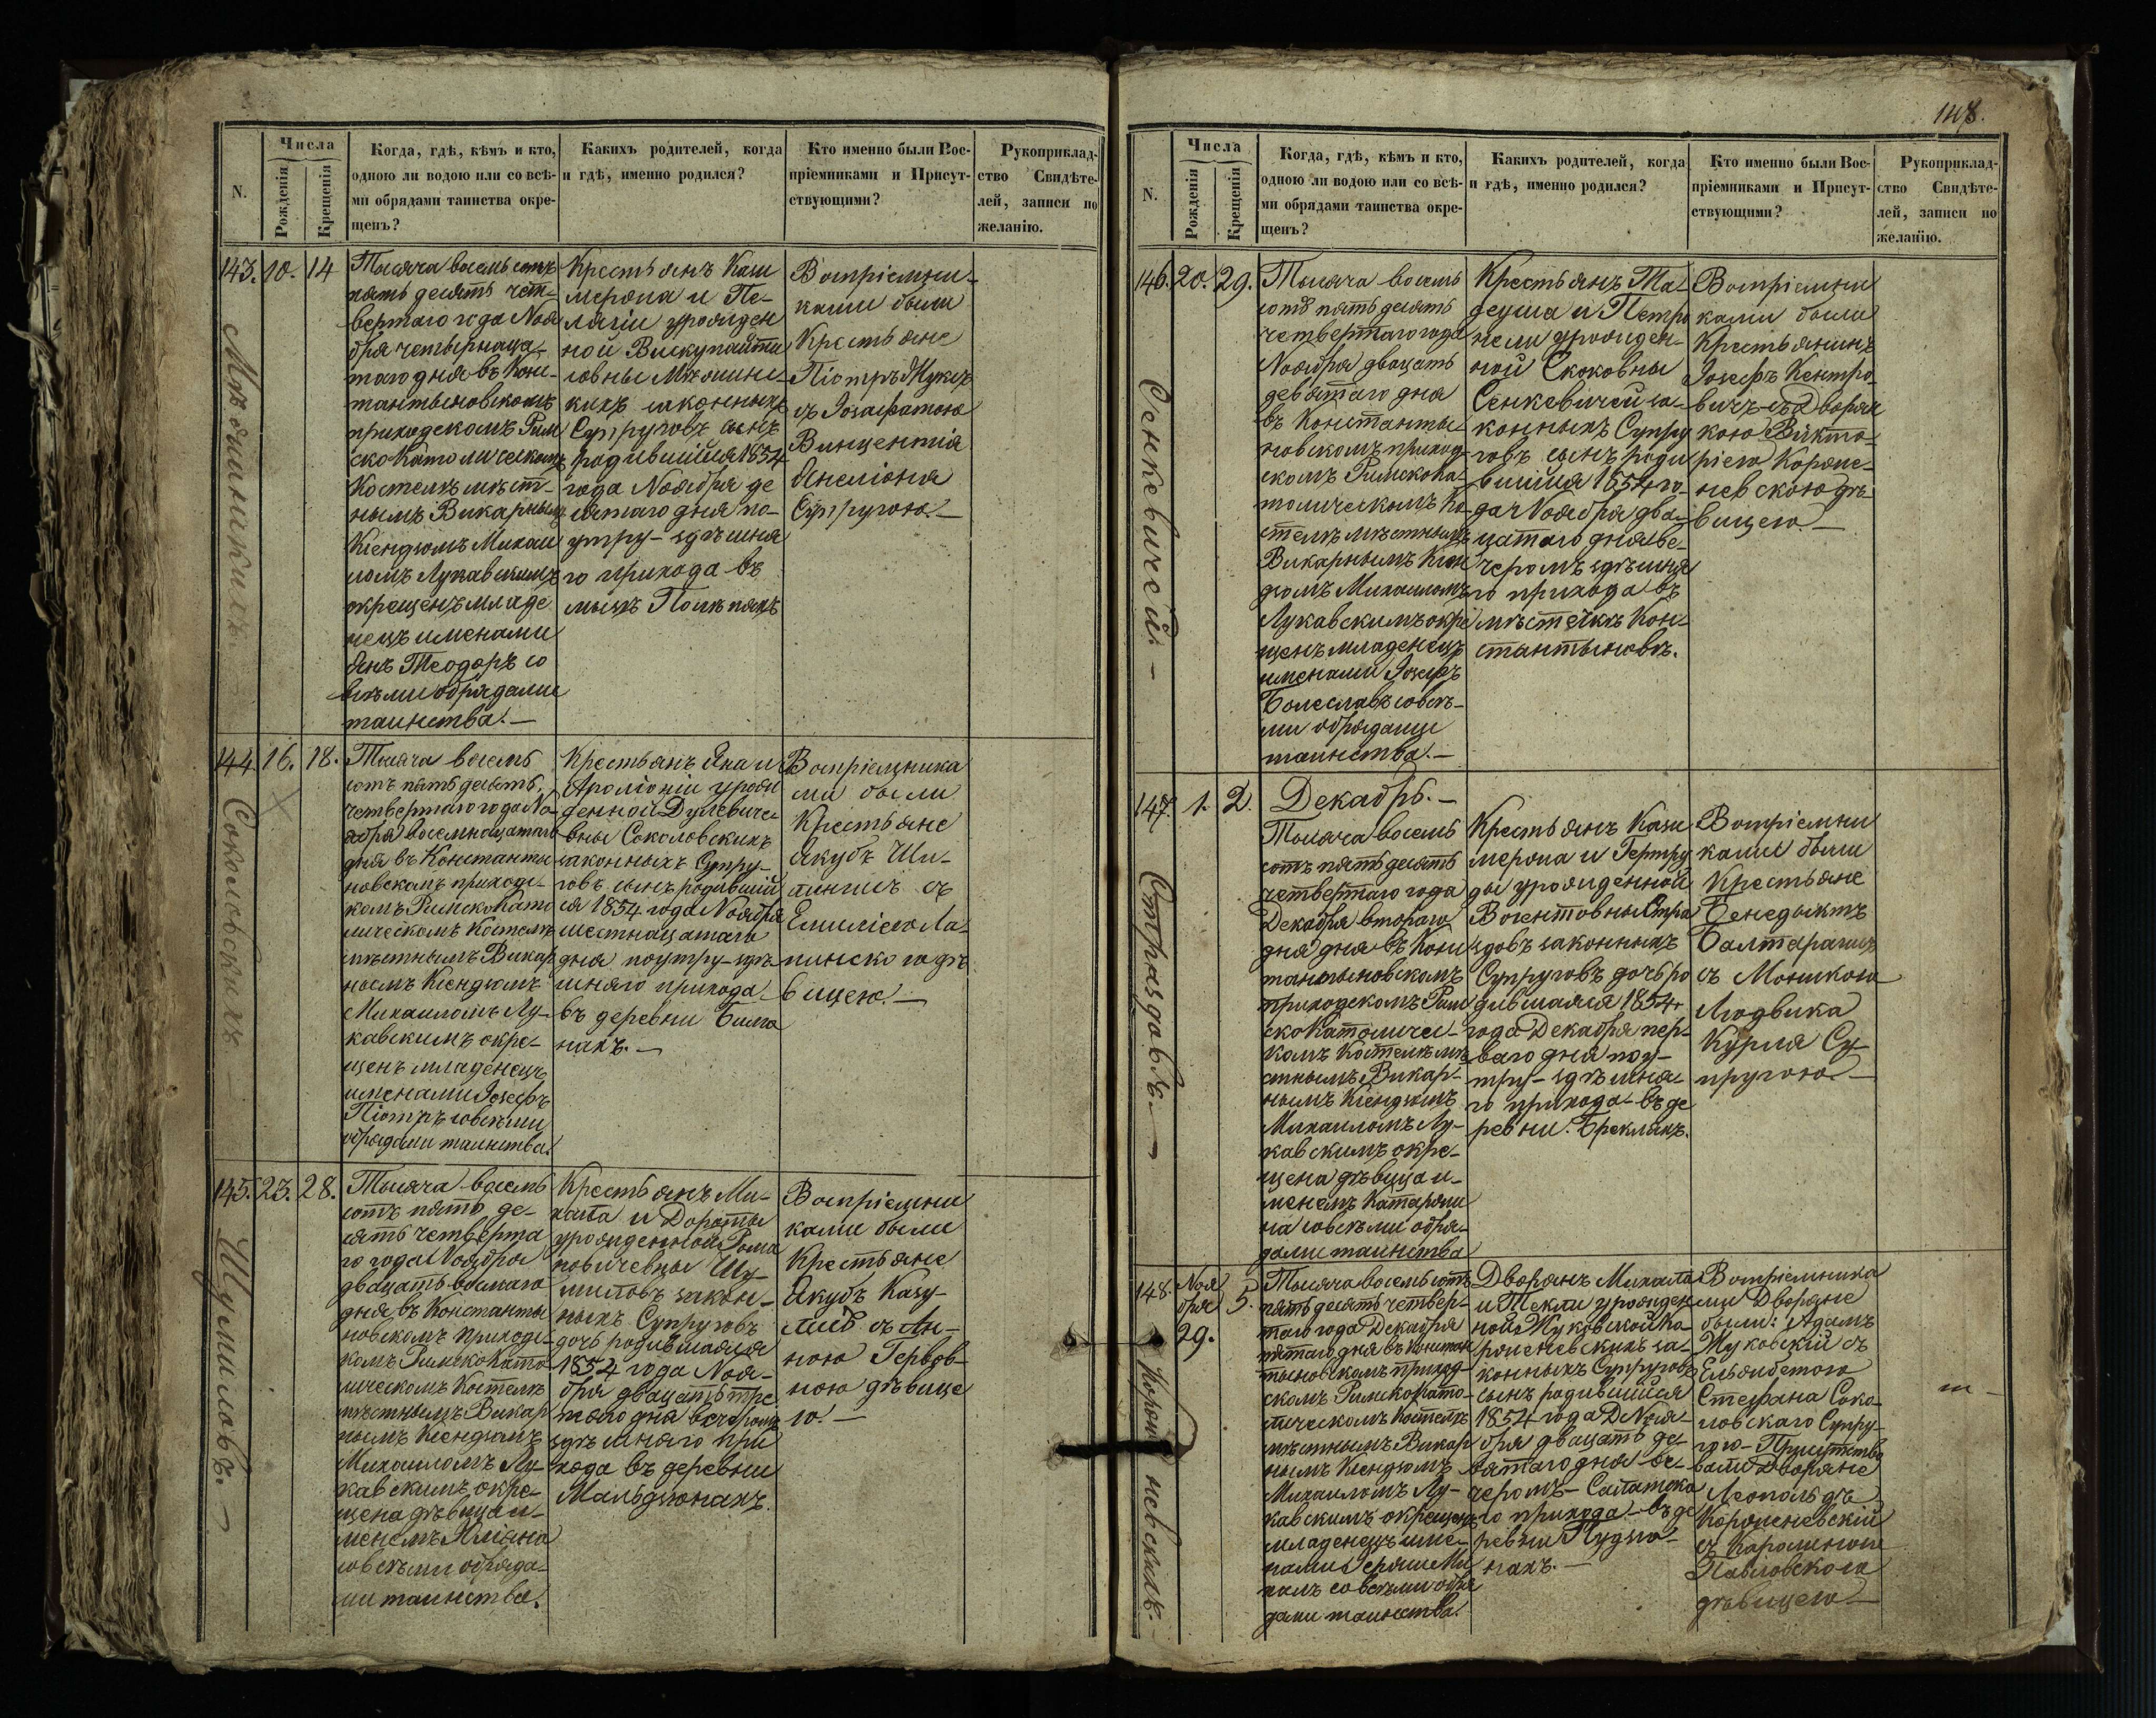 N.
Числа
Рожденія
Крещенія
Когда, гдѣ, кѣмъ и кто,
одною ли водою или со всѣ-
ми обрядами таинства окре-
щенъ?
Какихъ родителей, когда
и гдѣ, именно родился?
Кто именно были Вос-
пріемниками и Присут-
ствующими?
Рукоприклад-
ство Свидѣте-
лей, записи по
желанію.
143.
10.
14
Тысяча восемь сотъ
пять десять чет-
вертаго года Ноя
бря четырнаца-
таго дня въ Конс-
тантыновскомъ
приходскомъ Рим
скокатолическомъ
Костелѣ мѣст-
нымъ Викарнымъ
Ксендзомъ Михаи
ломъ Лукавскимъ
окрещенъ младе
нецъ именами
Янъ Теодоръ со
всѣми обрядами
таинства.—
Крестьянъ Кази
мерона и Пе-
лягіи урожден
ной
законныхъ
Супруговъ сынъ
родившійся 1854
года Ноября де
сятаго дня по-
утру- здѣшня
го прихода въ
Воспріемни-
ками были
Крестьяне
Піотръ
съ Іозафатою
Винцентія
Супругою.—
144.
16.
18.
Соколовскихъ
Тысяча восемь
сотъ пять десять
четвертаго года Но-
ября восемнацатаго
дня въ Константы
новскомъ приходс-
комъ Римскокато
лическомъ Костелѣ
мѣстнымъ Викар
нымъ Ксендзомъ
Михаиломъ Лу-
кавскимъ окре-
щенъ младенецъ
именами Іозефъ
Піотръ совсѣми
обрядами таинства.
Крестьянъ Яна и
Аполіоніи урож
денной Дулевиче
вны Соколовскихъ
законныхъ Супру-
говъ сынъ родивший
ся 1854 года Ноября
шестнацатаго
дня поутру- здѣ
шняго прихода
въ деревни Била
нахъ.—
Воспріемника
ми были
Крестьяне
Якубъ
съ
Емиліею Ла-
пинскою дѣ
вицею.—
145.
23.
28.
Шумиловъ.—
Тысяча восемь
сотъ пять де-
сять четверта
го года Ноября
двацать восьмаго
дня въ Константы
новскомъ приходс-
комъ Римскокато
лическомъ Костелѣ
мѣстнымъ Викар
нымъ Ксендзомъ
Михаиломъ Лу-
кавскимъ окре-
щена дѣвица и-
менемъ Юліяна
совсѣми обряда-
ми таинства.
Крестьянъ Ми-
хала и Дороты
урожденной Рома
новичевны Шу-
миловъ закон-
ныхъ Супруговъ
дочь родившаяся
1854 года Ноя-
бря двацать тре
таго дня вечеромъ
здѣшняго при
хода въ деревни
Мальдзюнахъ.
Воспріемни
ками были
Крестьяне
Якубъ Казу-
съ Ан-
ною
ною дѣвице
ю.—
148.
N.
Числа
Рожденія
Крещенія
Когда, гдѣ, кѣмъ и кто,
одною ли водою или со всѣ-
ми обрядами таинства окре-
щенъ?
Какихъ родителей, когда
и гдѣ, именно родился?
Кто именно были Вос-
пріемниками и Присут-
ствующими?
Рукоприклад-
ство Свидѣте-
лей, записи по
желанію.
146.
20.
29.
Сенкевичей.—
Тысяча восемь
сотъ пять десять
четвертаго года
Ноября двацать
девятаго дня
въ Константы-
новскомъ приход-
скомъ Римскока-
толическомъ Ко-
стелѣ мѣстнымъ
Викарнымъ Ксен
дзомъ Михаиломъ
Лукавскимъ окре
щенъ младенецъ
именами Іозефъ
Болеславъ совсѣ-
ми обрядами
таинства.—
Крестьянъ Та-
деуша и Петро
нели урожден-
ной Скоковны
Сенкевичей за-
конныхъ Супру
говъ сынъ роди
вшійся 1854 го-
да Ноября два-
цатаго дня ве-
черомъ здѣшня
го прихода въ
мѣстечкѣ Кон-
стантыновѣ.
Воспріемни
ками были
Крестьянинъ
Іозефъ Кентро-
вичъ съ Дворян
кою Викто-
ріею Короне-
невскою дѣ-
вицею.—
147.
1.
2.
Страздовъ.—
Декабрь.—
Тысяча восемь
сотъ пять десять
четвертаго года
Декабря втораго
дня дня въ Конс
тантыновскомъ
приходскомъ Рим
скокатоличес-
комъ Костелѣ мѣ
стнымъ Викар-
нымъ Ксендзомъ
Михаиломъ Лу-
кавскимъ окре-
щена дѣвица и-
менемъ Катаржи
на совсѣми обря-
дами таинства
Крестьянъ Кази
мерона и Гертру
ды урожденной
Воентовны Стра
здовъ законныхъ
Супруговъ дочь ро
дившаяся 1854
года Декабря пер-
ваго дня поу-
тру- здѣшня-
го прихода- въ де
ревни
Воспріемни
ками были
Крестьяне
Бенедыктъ
съ
Людвика
Супругою.—
148.
Ноя
бря
29.
5.
Тысяча восемь сотъ
пять десять четвер-
таго года Декабря
пятаго дня въ Констан
тыновскомъ приход-
скомъ Римскокато-
лическомъ Костелѣ
мѣстнымъ Викар
нымъ Ксендзомъ
Михаиломъ Лу-
кавскимъ окрещенъ
младенецъ име-
нами
халъ со всѣми обря
дами таинства.
Дворянъ Михала
и Текли урожден
ной Жуковской Ко-
роненевскихъ за-
конныхъ Супруговъ
сынъ родившійся
1854 года Ноя-
бря двацать де-
вятаго дня ве-
черомъ-
го прихода- въ де
ревни
нахъ.—
Воспріемника
ми Дворяне
были: Адамъ
Жуковскій съ
Ельжбетою
Стефана Соко-
ловскаго Супру-
гою- Присутство
вали Дворяне
Леопольдъ
Короненевскій
съ
Павловскою
дѣвицею.—